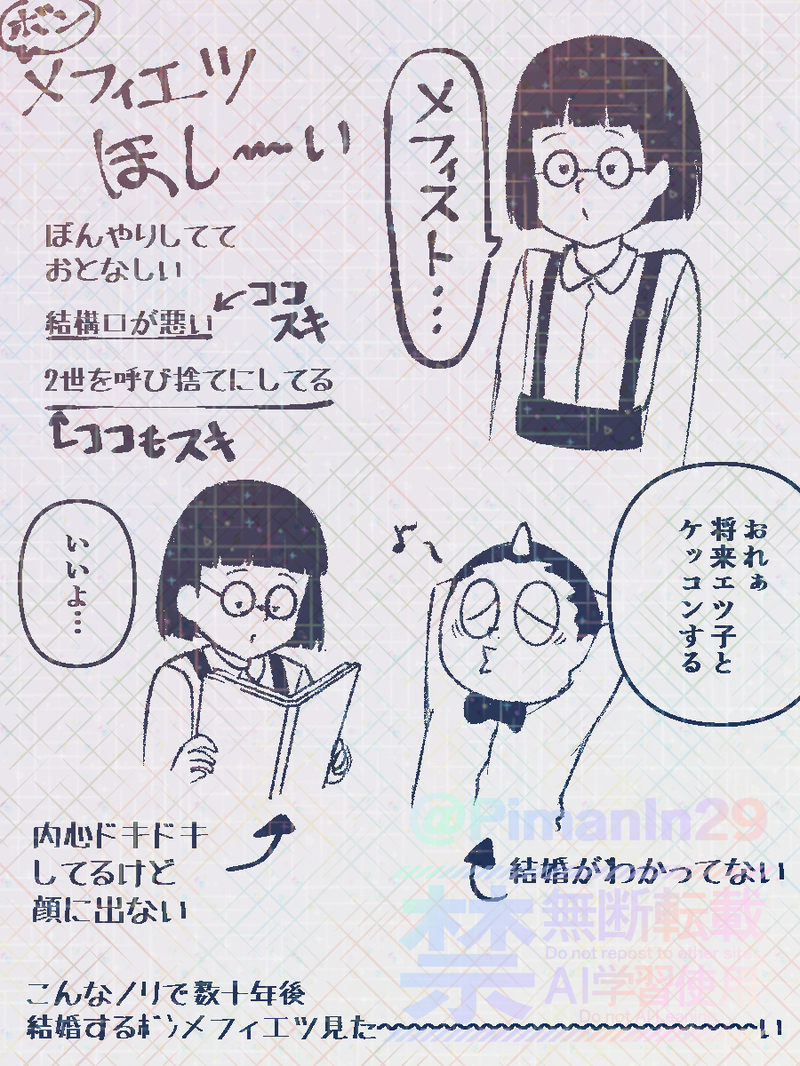 ボン
メフィエツ
ほし〜い
ぼんやりしてて
おとなしい
結構口が悪い
ココ
スキ
2世を呼び捨てにしてる
ココもスキ
メフィスト…
おれぁ
将来エツ子と
ケッコンする
いいよ…
内心ドキドキ
してるけど
顔に出ない
結婚がわかってない
@PimanIn29
禁
無断転載
Do not repost to other sites
AI学習使用
こんなノリで数十年後
結婚するボンメフィエツ見た〜〜〜〜〜〜〜〜〜〜〜〜〜〜い